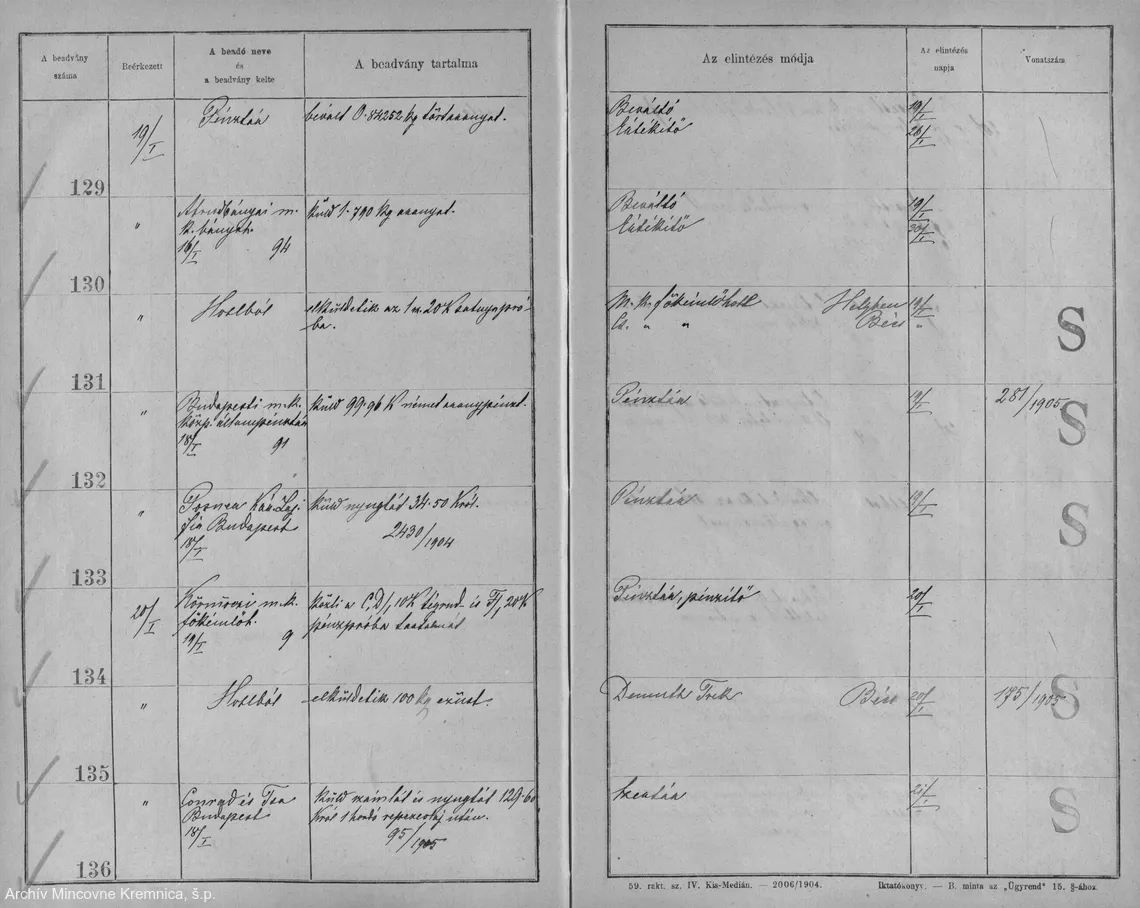 A beadvány
száma
Beérkezett
A beadó neve
és
a beadvány kelte
A beadvány tartalma
Az elintézés módja
Az elintézés
napja
Vonatszám
129
19/I
Pénztár
bevált 0.84252 kg törtaranyat.
Beváltó
19/I
26/I
130
"
m.
k.
16/I 94
küld 1.790 kg aranyat.
Beváltó
19/I
30/I
131
"
Hivatalból
elküldetik az 1 20 K pró-
ba.
M. k. főkémlőhiv. Helyben 19/I
" " Bécs "
S
132
"
Budapesti m. k.
közp. állampénztár
18/I 91
küld 99.96 K német aranypénzt.
Pénztár
19/I
281/1905
S
133
"
Budapest
18/I
küld nyugtát 34.50 Król.
2430/1904
Pénztár
19/I
S
134
20/I
Körmöczi m. k.
főkémlőh.
19/I 9
közli a C, D, 10 K és F, 20 K
pénzpróba tartalmát
Pénztár, pénzítő
20/I
135
"
Hivatalból
elküldetik 100 kg ezüst.
Demuth Frik Bécs
20/I
175/1905
S
136
"
Conrad és Tsa
Budapest
18/I
küld számlát és nyugtát 129.60
Król 1 hordó után.
95/1905
21/I
S
59. rzkt. sz. IV. Kis-Medián. — 2006/1904.
Iktatókönyv. — B. minta az „Ügyrend" 15. §-ához.
Archív Mincovne Kremnica, š.p.